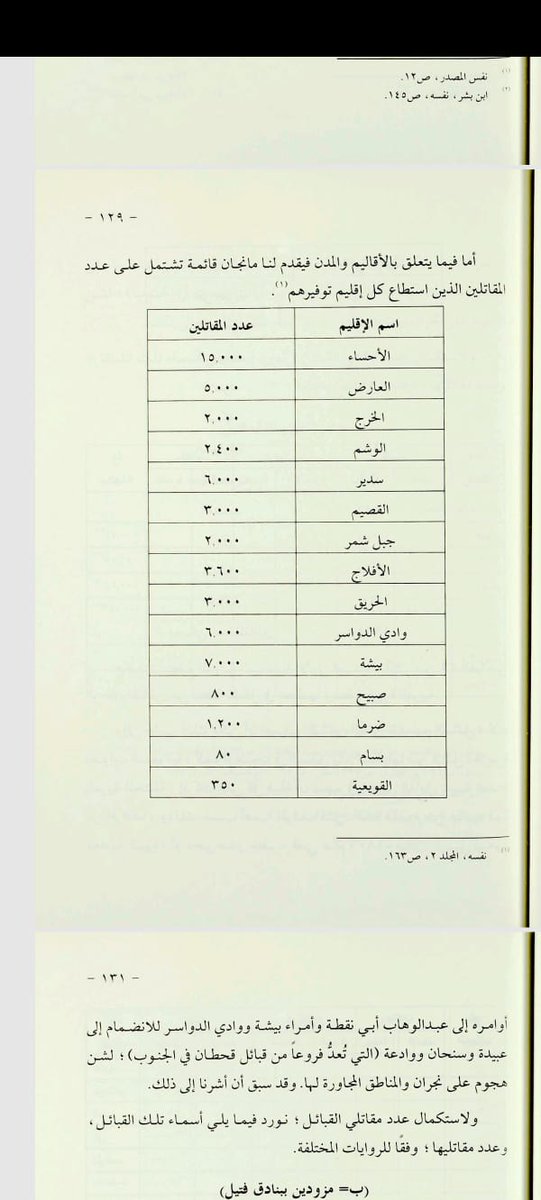 (١) نفس المصدر، ص١٢.
(٢) ابن بشر، نفسه، ص١٤٥.
– ١٢٩ –
أما فيما يتعلق بالأقاليم والمدن فيقدم لنا مانجان قائمة تشتمل على عدد
المقاتلين الذين استطاع كل إقليم توفيرهم(١).
اسم الإقليم عدد المقاتلين
الأحساء ١٥,٠٠٠
العارض ٥,٠٠٠
الخرج ٢,٠٠٠
الوشم ٢,٤٠٠
سدير ٦,٠٠٠
القصيم ٣,٠٠٠
جبل شمر ٢,٠٠٠
الأفلاج ٣,٦٠٠
الحريق ٣,٠٠٠
وادي الدواسر ٦,٠٠٠
بيشة ٧,٠٠٠
صبيح ٨٠٠
ضرما ١,٢٠٠
بسام ٨٠
القويعية ٣٥٠
(١) نفسه، المجلد ٢، ص١٦٣.
– ١٣١ –
أوامره إلى عبدالوهاب أبي نقطة وأمراء بيشة ووادي الدواسر للانضمام إلى
عبيدة وسنحان ووادعة (التي تُعدُّ فروعاً من قبائل قحطان في الجنوب)؛ لشن
هجوم على نجران والمناطق المجاورة لها. وقد سبق أن أشرنا إلى ذلك.
ولاستكمال عدد مقاتلي القبائل؛ نورد فيما يلي أسماء تلك القبائل،
وعدد مقاتليها؛ وفقًا للروايات المختلفة.
(ب= مزودين ببنادق فتيل)